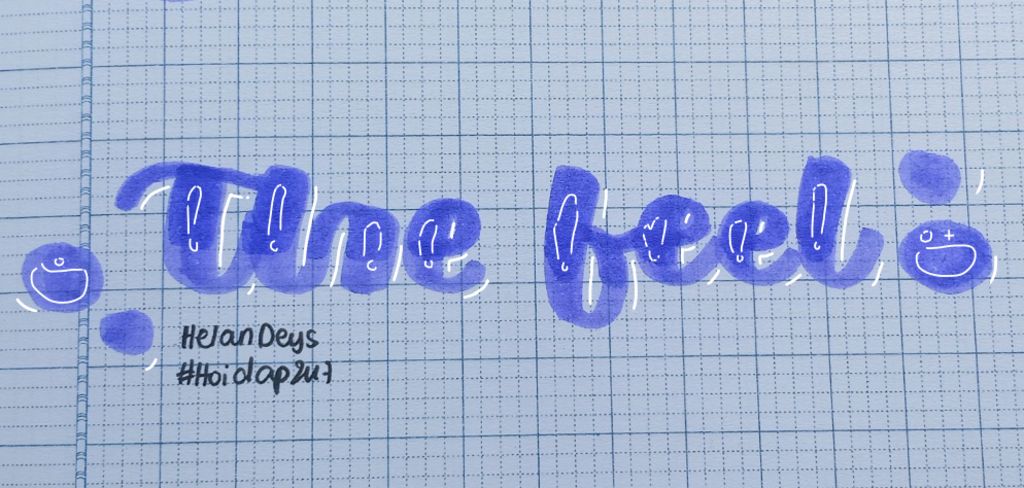 The feel
HelanDeys
#Hoidap247